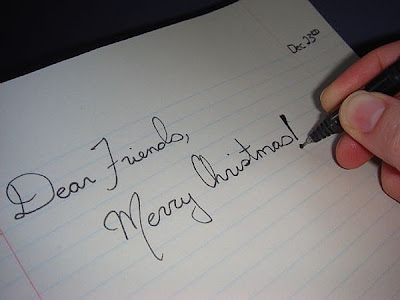 Dec 23rd
Dear Friends,
Merry Christmas!